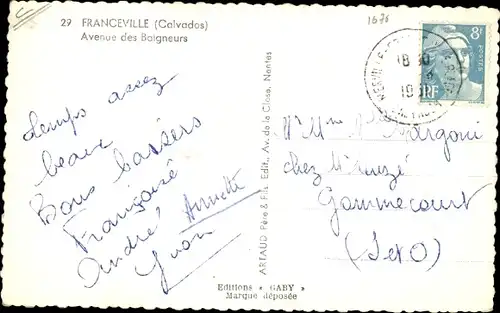 29 FRANCEVILLE (Calvados)
Avenue des Baigneurs
1676
8F
POSTES
RF
18 30
19
temps assez
beau
Bons baisers
Françoise
André Annette
Yvon
ARTAUD Père & Fils, Edit., Av. de la Close, Nantes
Mr Mme Hargoni
chez
Gommecourt
(S et O)
Editions « GABY »
Marque déposée